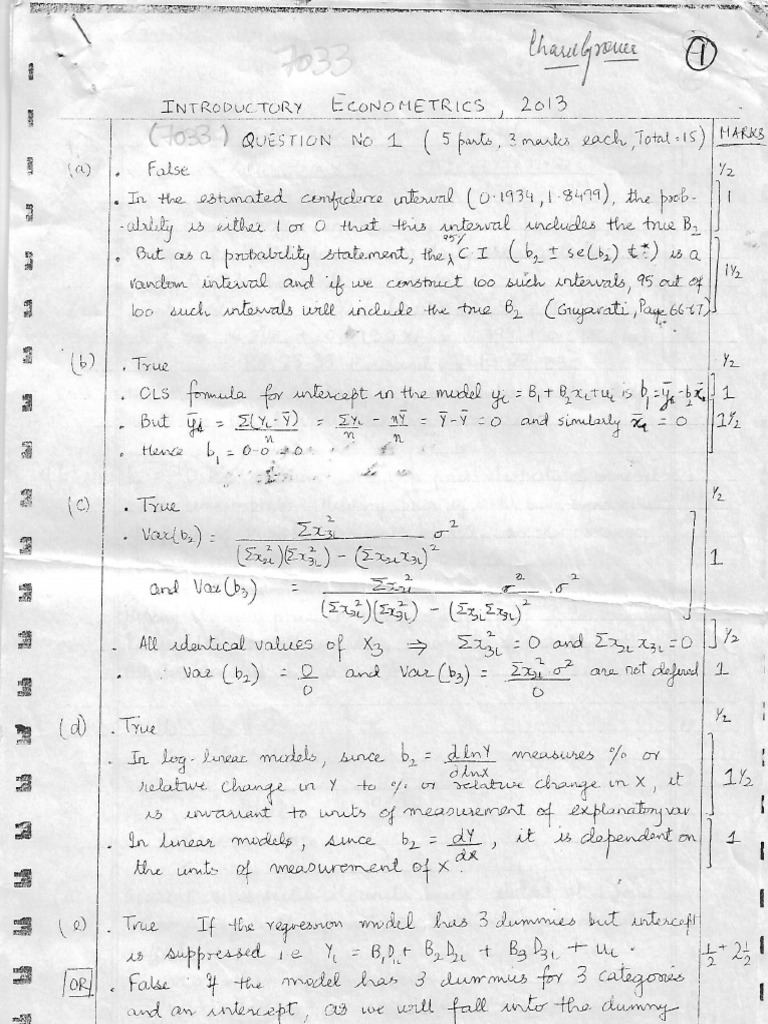 7033
Charu Grover
1
INTRODUCTORY ECONOMETRICS, 2013
(7033) QUESTION NO 1 ( 5 parts, 3 marks each, Total = 15) MARKS
(a) . False ½
. In the estimated confidence interval (0.1934, 1.8499), the prob- 1
-ability is either 1 or 0 that this interval includes the true B₂
. But as a probability statement, the 95% C.I (b₂ ± se(b₂) t*) is a 1½
random interval and if we construct 100 such intervals, 95 out of
100 such intervals will include the true B₂ (Gujarati, Page 66-67)
(b) . True ½
. OLS formula for intercept in the model yᵢ = B₁ + B₂xᵢ + uᵢ is b₁ = ȳᵢ - b₂x̄ᵢ 1
. But ȳᵢ = Σ(Yᵢ-Ȳ)/n = ΣYᵢ/n - nȲ/n = Ȳ-Ȳ = 0 and similarly x̄ᵢ = 0 1½
. Hence b₁ = 0-0 = 0
(c) . True ½
. Var(b₂) = Σx₃ᵢ² / (Σx₂ᵢ²)(Σx₃ᵢ²) - (Σx₂ᵢx₃ᵢ)² σ² 1
and Var(b₃) = Σx₂ᵢ² / (Σx₂ᵢ²)(Σx₃ᵢ²) - (Σx₃ᵢΣx₃ᵢ)² σ² . σ²
. All identical values of X₃ ⇒ Σx₃ᵢ² = 0 and Σx₂ᵢx₃ᵢ = 0 ½
. ∴ Var (b₂) = 0/0 and Var(b₃) = Σx₂ᵢ² σ²/0 are not defined 1
(d) . True ½
. In log-linear models, since b₂ = dlnY/dlnX measures % or 1½
relative change in Y to % or relative change in X, it
is invariant to units of measurement of explanatory var
. In linear models, since b₂ = dY/dX, it is dependent on 1
the units of measurement of X.
(e) . True If the regression model has 3 dummies but intercept
is suppressed i.e Yᵢ = B₁D₁ᵢ + B₂D₂ᵢ + B₃D₃ᵢ + uᵢ . ½ + 2½
OR . False If the model has 3 dummies for 3 categories
and an intercept, as we will fall into the dummy